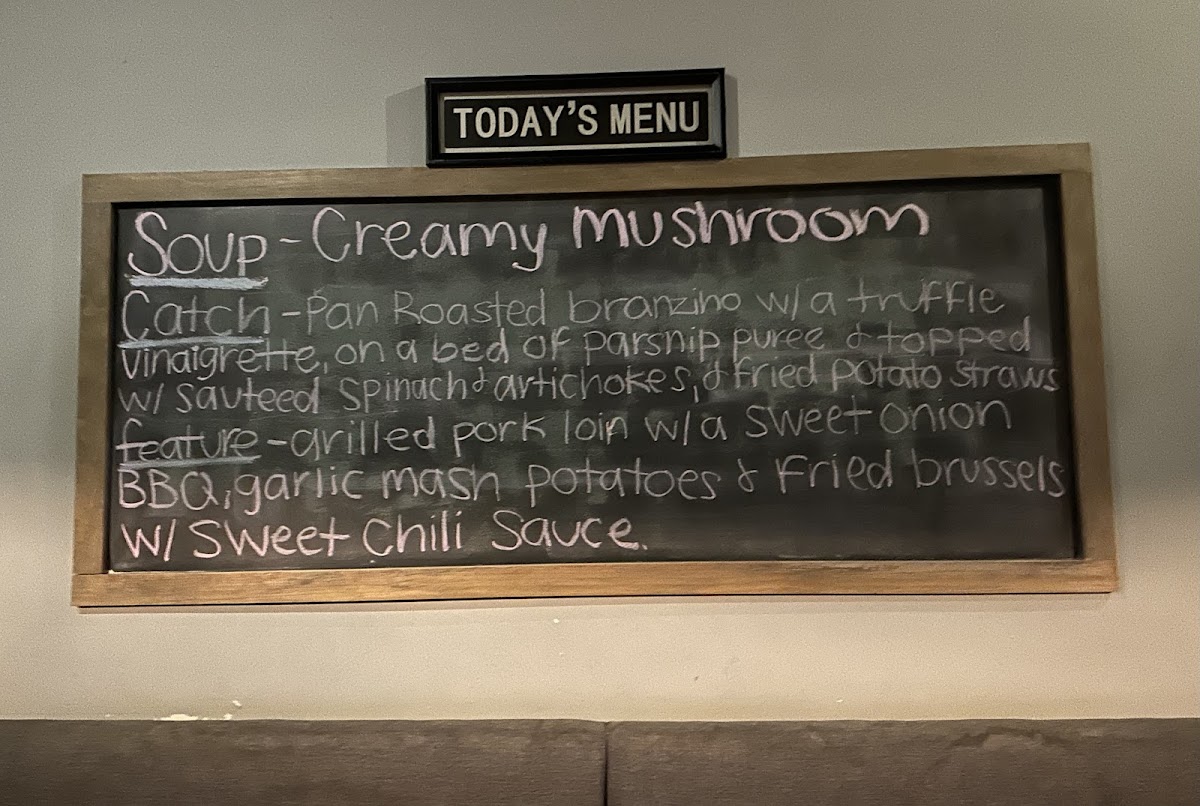 TODAY'S MENU
Soup - Creamy mushroom
Catch - Pan Roasted branzino w/ a truffle
vinaigrette, on a bed of parsnip puree & topped
w/ sauteed spinach & artichokes, & fried potato straws
feature - grilled pork loin w/ a sweet onion
BBQ, garlic mash potatoes & fried brussels
w/ sweet chili sauce.